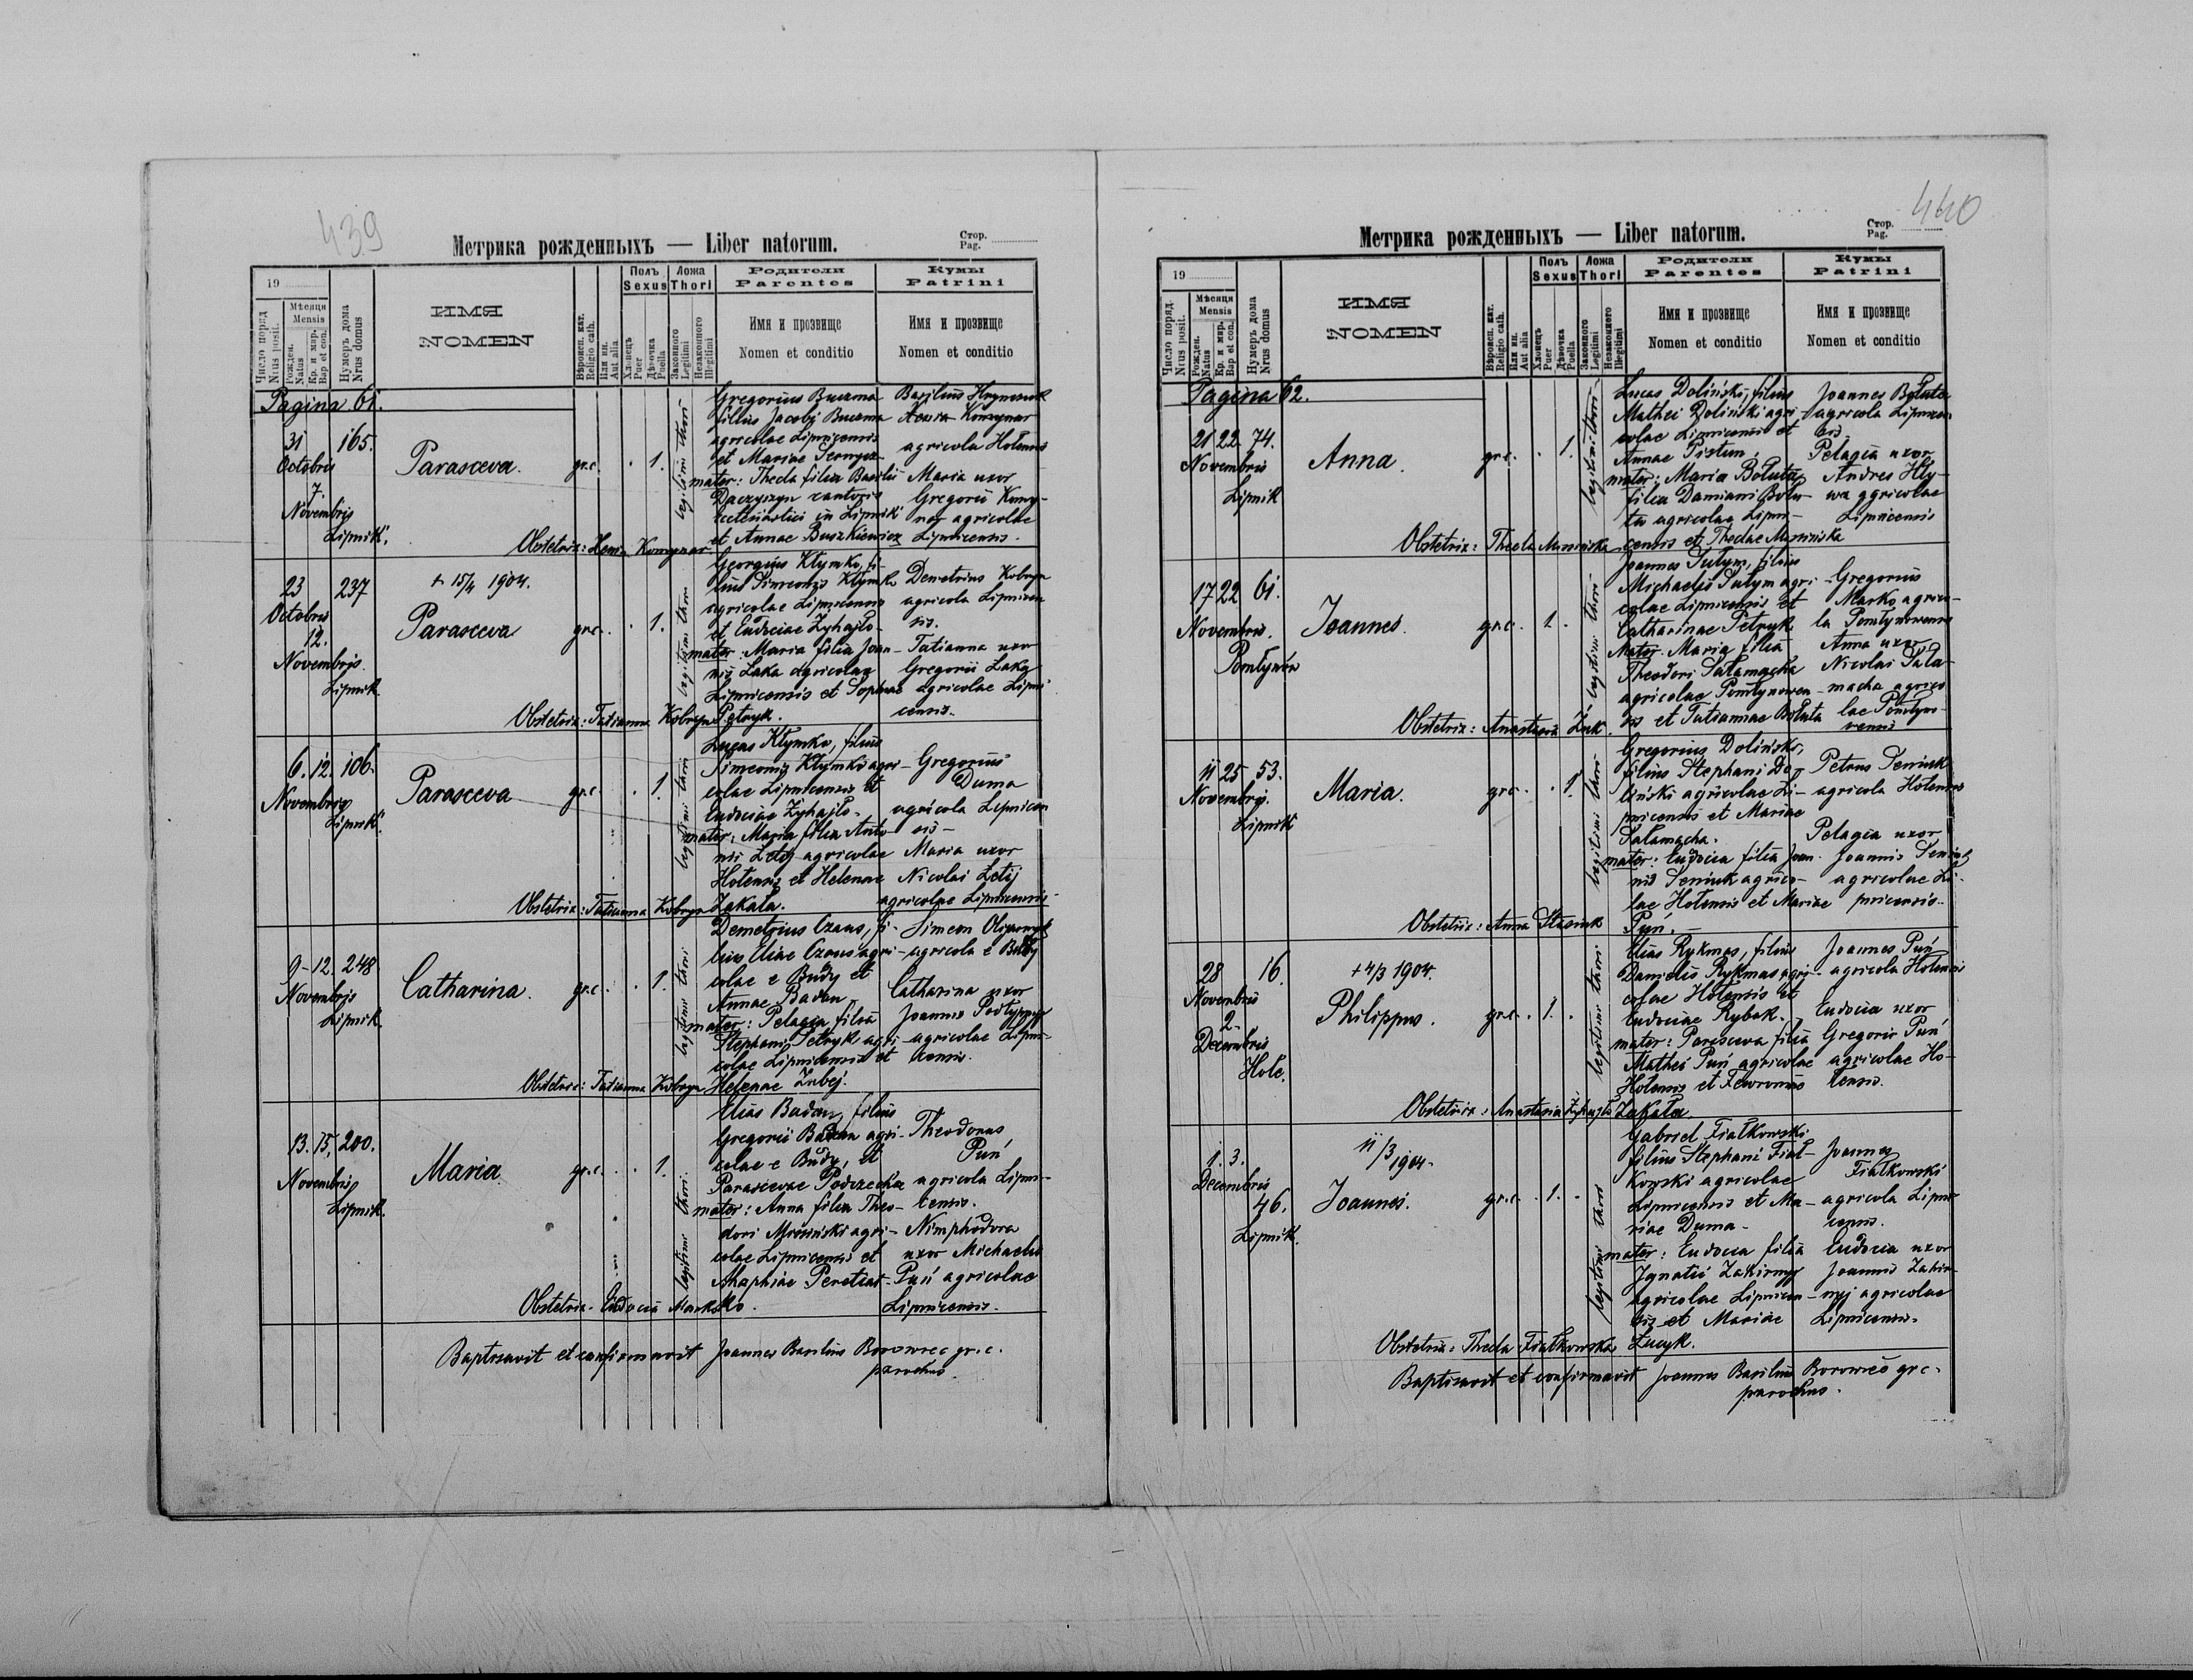 439
Метрика рожденныхъ — Liber natorum.
Стор.
Pag.
19
Число поряд.
Nrus posit.
Мѣсяця
Mensis
Рожден.
Natus
Кр. и мир.
Bap et con.
Нумеръ дома
Nrus domus
ИМЯ
NOMEN
Вѣроисп. кат.
Religio cath.
Или ин.
Aut alia
Полъ
Sexus
Хлопецъ
Puer
Дѣвочка
Puella
Ложа
Thori
Законного
Legitimi
Незаконного
Illegitimi
Родители
Parentes
Имя и прозвище
Nomen et conditio
Кумы
Patrini
Имя и прозвище
Nomen et conditio
Pagina 61.
31 165.
Octobris
7.
Novembris
Lipnik.
Parasceva.
gr.c. . 1.
legitimi thori
Gregorius Buczma
filius Jacobi Buczma
agricolae Lipnicensis
et Mariae
mater: Thecla filia Basilii
Daczyszyn cantoris
ecclesiastici in Lipnik
et Annae Buszkiewicz
Basilius
agricola Hotensis
Maria uxor
Gregorii Komy-
nar agricolae
Lipnicensis.
Obstetrix: Xenia Komynar.
23 237
Octobris
12.
Novembris.
Lipnik
+ 15/4 1904.
Parasceva
gr.c. . 1.
legitimi thori
Georgius Kłymko, fi-
lius Simeonis Kłymko
agricolae Lipnicensis
et Eudociae Żyhajło-
mater: Maria filia Joan-
nis Łaka agricolae
Lipnicensis et Sophiae
Petryk.
Demetrius Kobryn
agricola Lipnicen
sis.
Tatianna uxor
Gregorii Łaka
agricolae Lipni
censis.
Obstetrix: Tatianna Kobryn
6. 12. 106.
Novembris
Lipnik.
Parasceva
gr.c. . 1.
legitimi thori
Lucas Kłymko, filius
Simeonis Kłymko agri-
colae Lipnicensis et
Eudociae Żyhajło-
mater: Maria filia Anto
nii Letij agricolae
Hotensis et Helenae
Zakala.
Gregorius
Duma
agricola Lipnicen
sis-
Maria uxor
Nicolai Letij
agricolae Lipnicensis-
Obstetrix: Tatianna Kobryn
9-12. 248
Novembris
Lipnik
Catharina.
gr.c. . 1.
legitimi thori
Demetrius Czaus, fi-
lius Eliae Czaus agri-
colae e Budy et
Annae Badan
mater: Pelagia filia
Stephani Petryk agri-
colae Lipnicensis et
Helenae Zubej.
Simeon
agricola e Budy
Catharina uxor
Joannis
agricolae Lipni-
censis.
Obstetrix: Tatianna Kobryn
13. 15. 200.
Novembris
Lipnik.
Maria
gr.c. . 1.
legitimi thori
Elias Badan, filius
Gregorii Badan agri-
colae e Budy, et
Parascevae Podrzecka
mater: Anna filia Theo-
dori Mroziński agri-
colae Lipnicensis et
Theodorus
Puń
agricola Lipni-
censis.
Nimphodora
uxor Michaelis
Puń agricolae
Lipnicensis.
Obstetrix- Eudocia Markotko.
Baptisavit et confirmavit Joannes Basilius Borowiec gr.c.
parochus.
440
Метрика рожденныхъ — Liber natorum.
Стор.
Pag.
19
Число поряд.
Nrus posit.
Мѣсяця
Mensis
Рожден.
Natus
Кр. и мир.
Bap et con.
Нумеръ дома
Nrus domus
ИМЯ
NOMEN
Вѣроисп. кат.
Religio cath.
Или ин.
Aut alia
Полъ
Sexus
Хлопецъ
Puer
Дѣвочка
Puella
Ложа
Thori
Законного
Legitimi
Незаконного
Illegitimi
Родители
Parentes
Имя и прозвище
Nomen et conditio
Кумы
Patrini
Имя и прозвище
Nomen et conditio
Pagina 62.
21 22. 74.
Novembris
Lipnik
Anna.
gr.c. . 1.
legitimi thori-
Lucas Doliński, filius
Mathei Doliński agri-
colae Lipnicensis et
Annae Pistun.
mater: Maria Bołuta
filia Damiani Bołu-
ta agricolae Lipni-
censis et Theclae
Joannes Bołuta
agricola Lipnicen
sis.
Pelagia uxor
Andrei Hły-
wa agricolae
Lipnicensis
Obstetrix: Thecla
17 22 61.
Novembris.
Pomłynów
Joannes.
gr.c. . 1. .
legitimi thori-
Joannes Sułym, filius
Michaelis Sułym agri-
colae Lipnicensis et
Catharinae Petryk
Mater: Maria filia
Theodori Sałamacha
agricolae Pomłynowen-
sis et Tatiannae Bołuta
Gregorius
Marko agrico-
la Pomłynowensis
Anna uxor
Nicolai Sała-
macha agrico
lae Pomłyno-
vensis
Obstetrix: Anastasia Żuk.
11 25 53.
Novembris.
Lipnik
Maria.
gr.c. . 1.
legitimi thori-
Gregorius Doliński,
filius Stephani Do-
liński agricolae Li-
pnicensis et Mariae
Sałamacha.
mater: Eudocia filia Joan-
nis Seniuk agrico-
lae Hotensis et Mariae
Puń.-
Petrus Seniuk
agricola Hotensis
Pelagia uxor
Joannis Seniuk
agricolae Li-
pnicensis.
Obstetrix: Anna Stasiuk
28 16.
Novembris
2-
Decembris
Hole.
+ 4/3 1904.
Philippus.
gr.c. . 1. .
legitimi thori.
Elias Rykmas, filius
Danielis Rykmas agri-
colae Hotensis et
Eudociae Rybak.
mater: Parasceva filia
Mathei Puń agricolae
Hotensis et Fewroniae
Zakala.
Joannes Puń
agricola Hotensis
Eudocia uxor
Gregorii Puń
agricolae Ho-
tensis.
Obstetrix: Anastasia Żyhajło
1. 3.
Decembris
46.
Lipnik.
11/3 1904-
Joannes.
gr.c. . 1. .
legitimi thori
Gabriel Fiałkowski
filius Stephani Fiał-
kowski agricolae
Lipnicensis et Ma-
riae Duma-
mater: Eudocia filia
Ignatii Zakirnyj
agricolae Lipnicen-
sis et Mariae
Łucyk.
Joannes
Fiałkowski
agricola Lipni
censis.
Eudocia uxor
Joannis Zakir-
nyj agricolae
Lipnicensis.
Obstetrix: Thecla Fiałkowska
Baptisavit et confirmavit Joannes Basilius Borowiec gr c.
parochus.